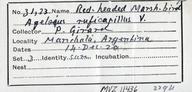 No. 31,423. Name Red-headed Marsh-bird
Agelaius ruficapillus V.
Collector P. Girard
Locality Manchala, Argentina
Date 14-Dec.20
Set 3 Identity Incubation
MVZ 11436